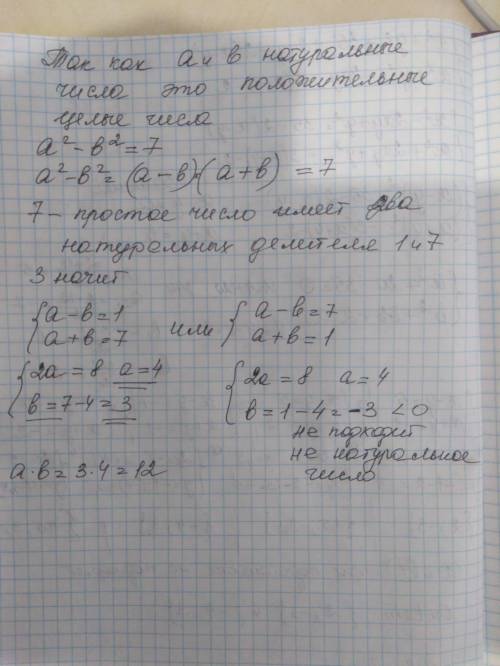 Так как а и в натуральные
числа это положительные
целые числа
a² - в² = 7
a² - в² = (a - в)·(a + в) = 7
7 - простое число имеет два
натуральных делителя 1 и 7
Значит
{ a - в = 1 или { a - в = 7
a + в = 7 a + в = 1
{ 2a = 8 a = 4 { 2a = 8 a = 4
в = 7 - 4 = 3 в = 1 - 4 = -3 < 0
не подходит
не натуральное
число
a · в = 3 · 4 = 12